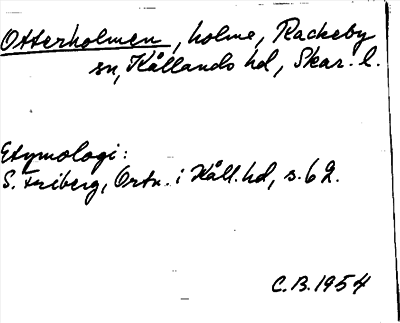 Otterholmen, holme, Rackeby
sn, Kållands hd, Skar. l.
Etymologi:
S. Friberg, Ortn. i Kåll. hd, s. 62.
C.B. 1954